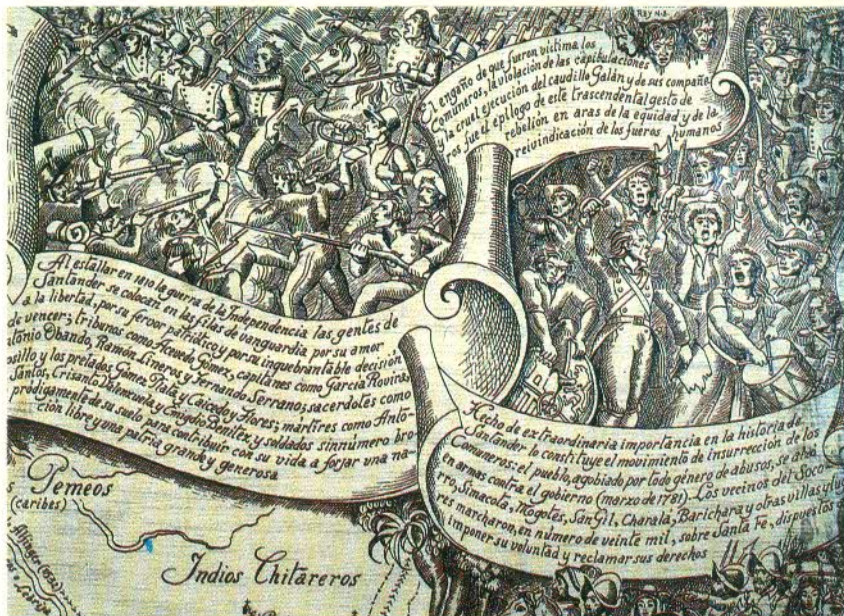 REY N.S.
El engaño de que fueron víctima los
Comuneros, la violación de las capitulaciones
y la cruel ejecución del caudillo Galán y de sus compañe
ros fue el epílogo de este trascendental gesto de
rebelión en aras de la equidad y de la
reivindicación de los fueros humanos
Al estallar en 1810 la guerra de la Independencia las gentes de
Santander se colocan en las filas de vanguardia por su amor
a la libertad, por su fervor patriótico y por su inquebrantable decisión
de vencer; tribunos como Acevedo Gómez, capitanes como García Rovira,
Obando, Ramón Lineros y Fernando Serrano; sacerdotes como
y los prelados Gómez Plata y Caicedo y Flores; mártires como Anto-
Santos, Crisanto Valenzuela y Benítez y soldados sinnúmero bro-
pródigamente de su suelo para contribuir con su vida a forjar una na-
ción libre y una patria grande y generosa
Hecho de extraordinaria importancia en la historia de
Santander lo constituye el movimiento de insurrección de los
Comuneros: el pueblo, agobiado por todo género de abusos, se alzó
en armas contra el gobierno (marzo de 1781) Los vecinos del Soco-
rro, Simacota, Mogotes, San Gil, Charalá, Barichara y otras villas y luga
res marcharon, en número de veinte mil, sobre Santa Fe, dispuestos a
imponer su voluntad y reclamar sus derechos
Pemeos
(caribes)
Alfinger
Indios Chitareros